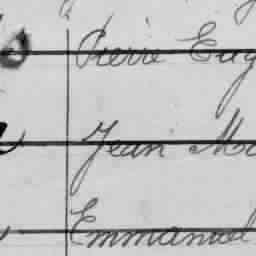 Pierre Eug
Jean Ma
Emmanuel